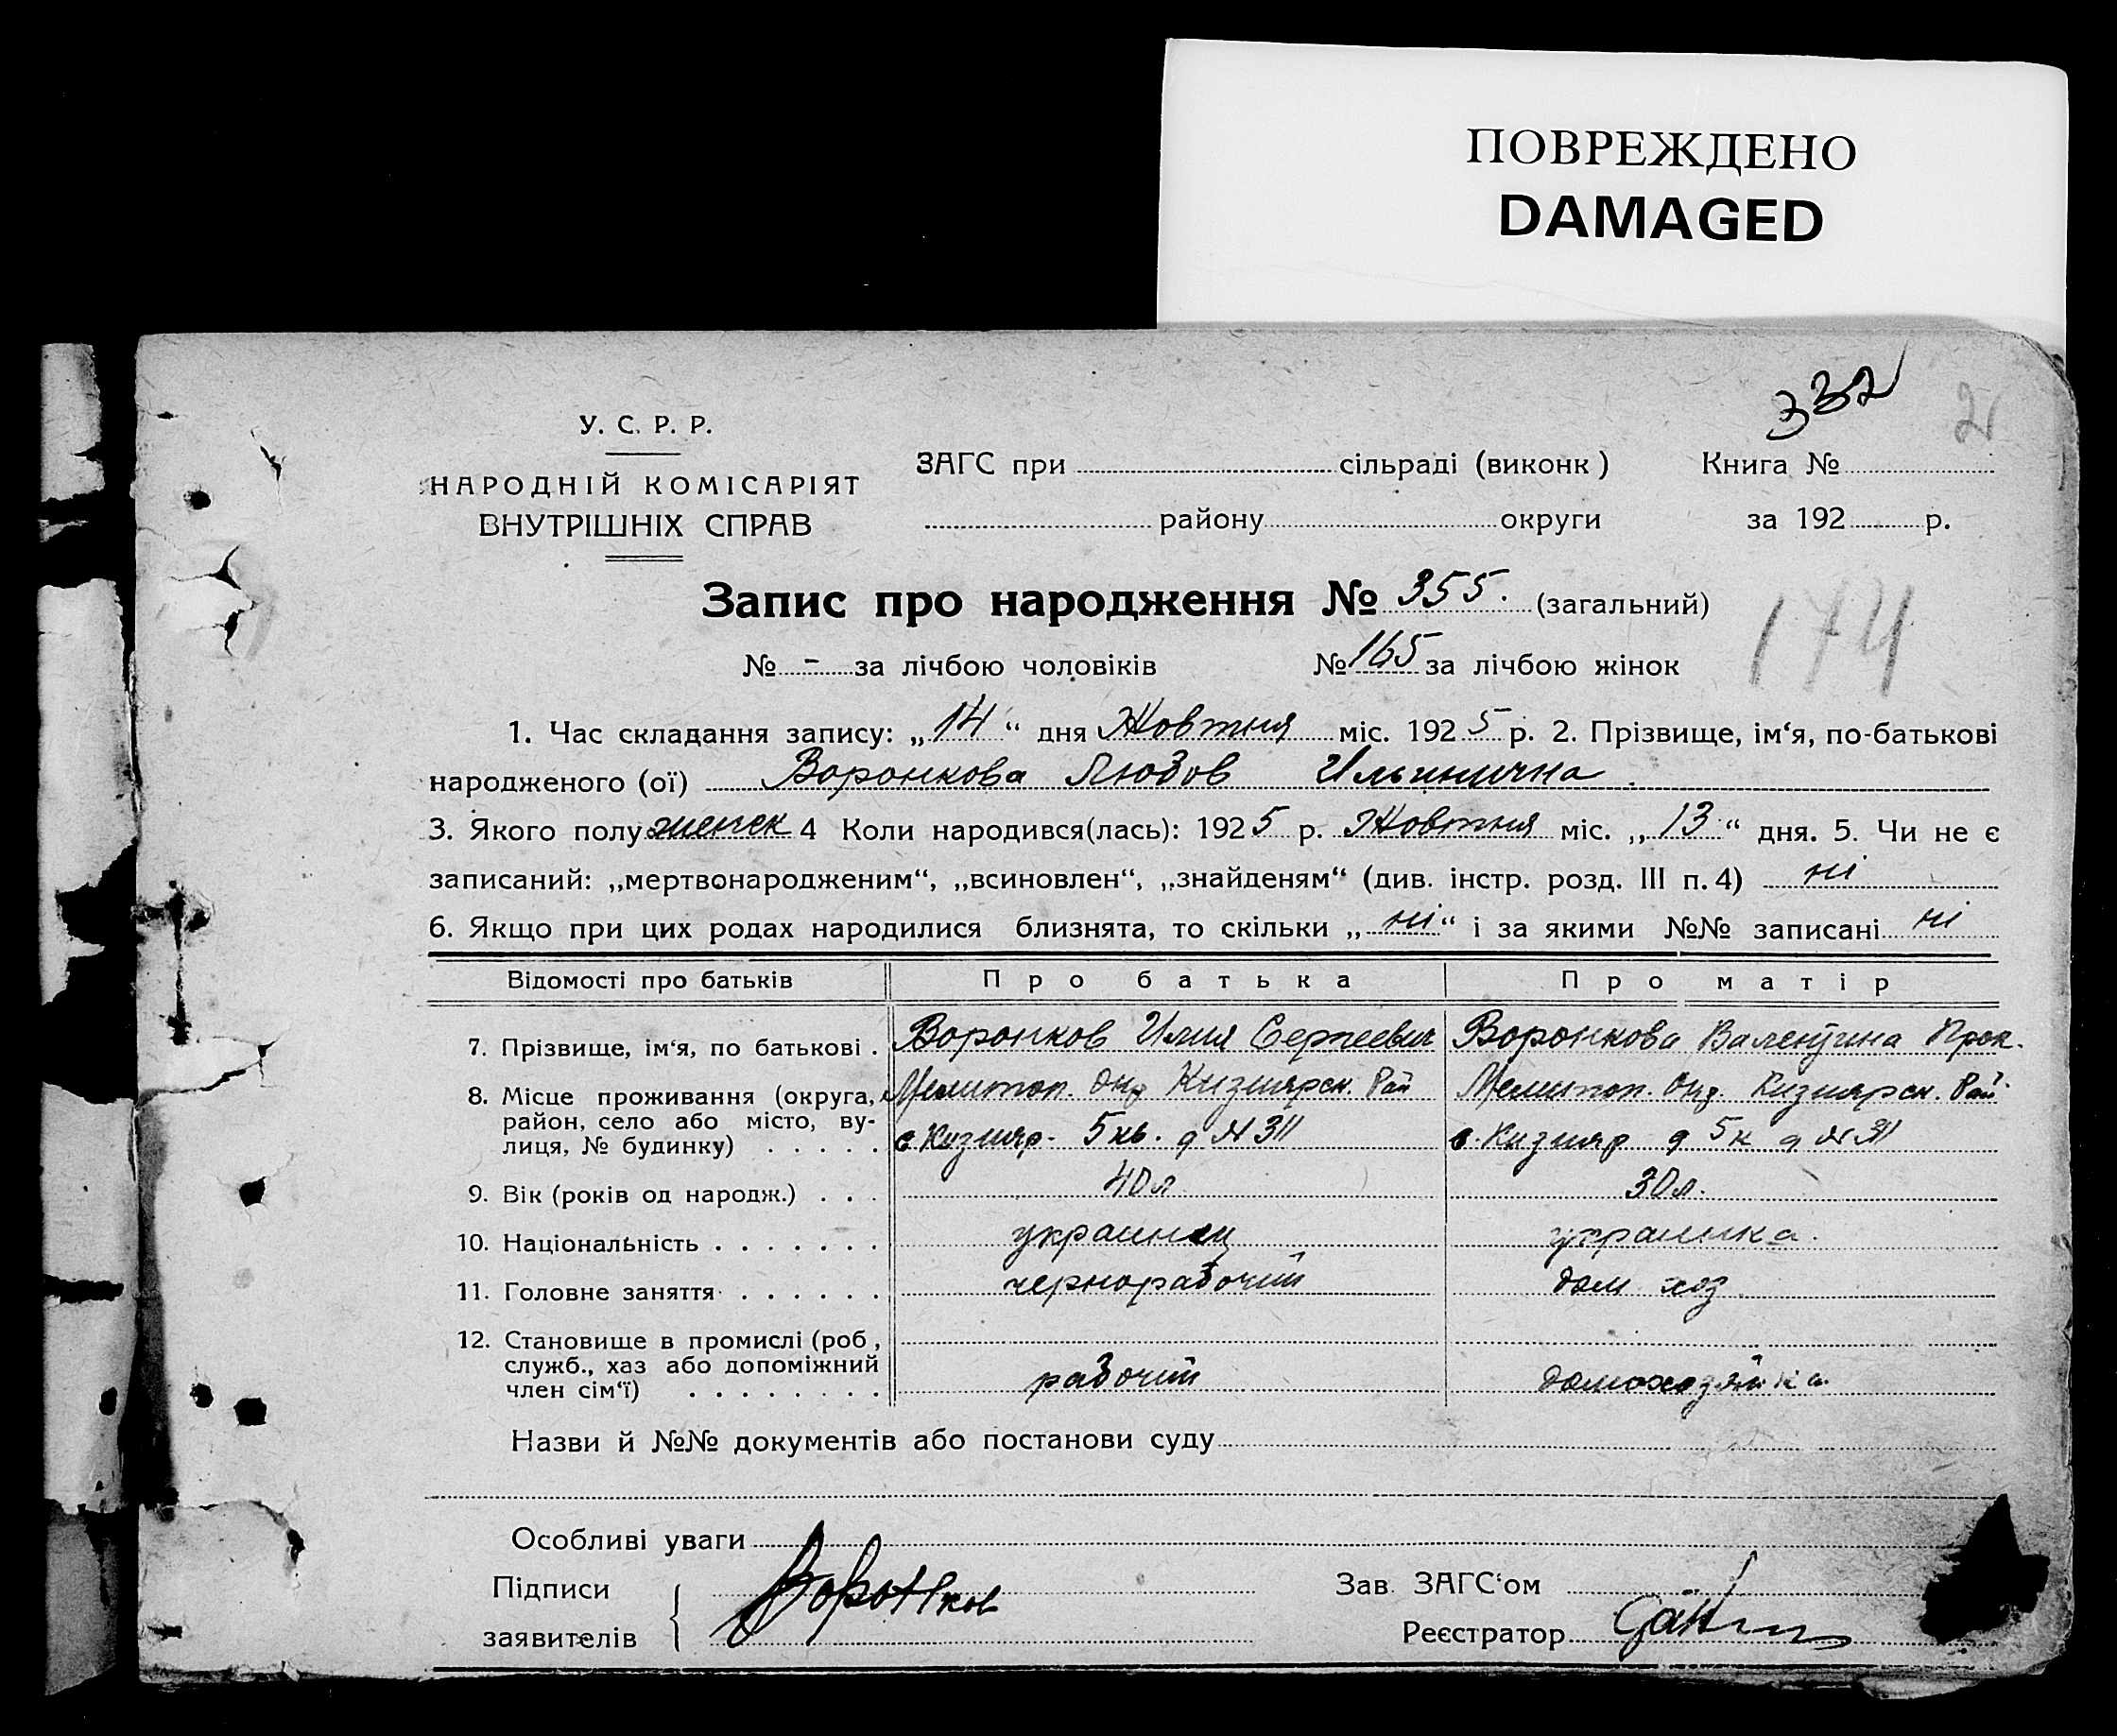 ПОВРЕЖДЕНО
DAMAGED
332
2
У. С. Р. Р.
НАРОДНІЙ КОМІСАРІЯТ
ВНУТРІШНІХ СПРАВ
ЗАГС при сільраді (виконк) Книга №
району округи за 192 р.
Запис про народження № 355. (загальний)
174
№ - за лічбою чоловіків № 165 за лічбою жінок
1. Час складання запису: „14“ дня Жовтня міс. 1925 р. 2. Прізвище, ім‘я, по-батькові
народженого (ої) Воронкова Любов Ильинична
3. Якого полу женск 4 Коли народився(лась): 1925 р. Жовтня міс. „13“ дня. 5. Чи не є
записаний: „мертвонародженим“, „всиновлен“, „знайденям“ (див. інстр. розд. III п. 4) ні
6. Якщо при цих родах народилися близнята, то скільки „ні“ і за якими №№ записані ні
Відомості про батьків Про батька Про матір
7. Прізвище, ім‘я, по батькові . Воронков Илия Сергеевич Воронкова Валентина Прок.
8. Місце проживання (округа, Мелитоп. Окр Кизиярск. Рай Мелитоп. Окр. Кизиярск. Рай
район, село або місто, ву-
лиця, № будинку) . . . . . с Кизияр. 5 кв. д № 311 с. Кизияр 5 к д № 311
9. Вік (років од народж.) . . . 40 л 30 л.
10. Національність . . . . . . . украинец украинка.
11. Головне заняття . . . . . . чернорабочий дом хоз
12. Становище в промислі (роб,
служб., хаз або допоміжний
член сім‘ї) . . . . . . . . рабочий домохозяйка
Назви й №№ документів або постанови суду
Особливі уваги
Підписи Воронков Зав. ЗАГС‘ом
заявителів Реєстратор